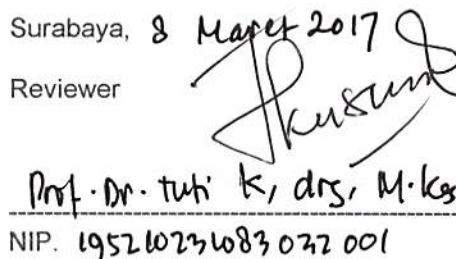 Surabaya, 8 Maret 2017
Reviewer
Prof. Dr. Tuti K, drg, M.Kes
NIP. 195210231083032001